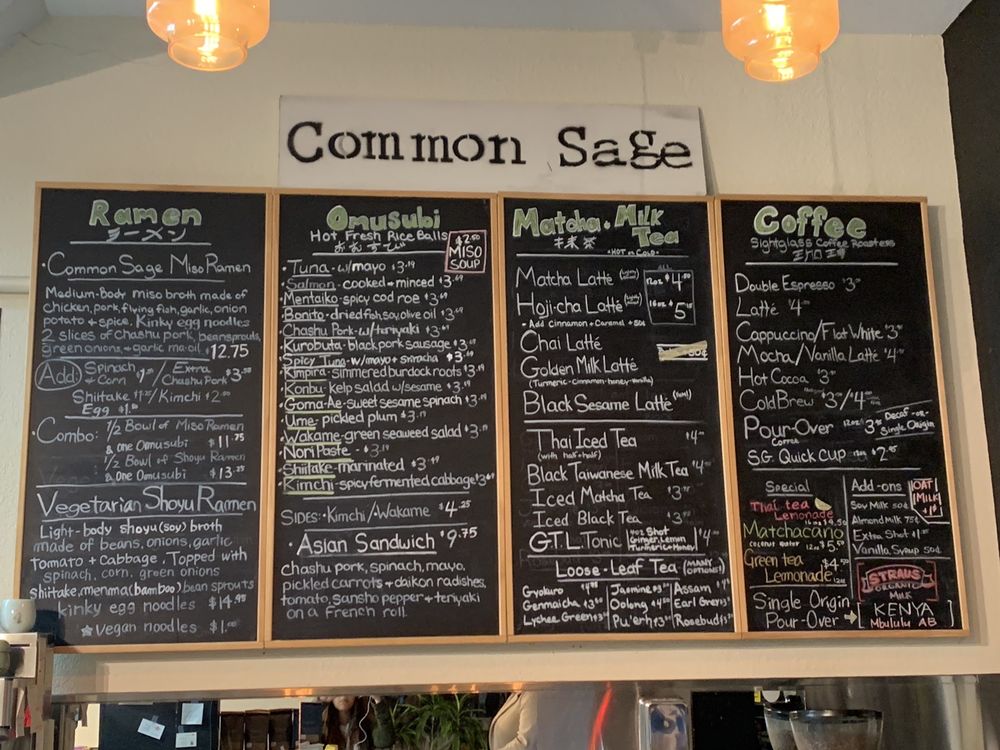 Common Sage
Ramen
ラーメン
Common Sage Miso Ramen
Medium-Body miso broth made of
chicken, pork, flying fish, garlic, onion
potato + spice. Kinky egg noodles
2 slices of chashu pork, beansprouts,
green onions, + garlic ma-oil $12.75
Add: Spinach + Corn
Extra Chashu Pork
Shiitake / Kimchi
Egg
Combo: 1/2 Bowl of Miso Ramen
& one Omusubi $11.75
1/2 Bowl of Shoyu Ramen
& One Omusubi $13.25
Vegetarian Shoyu Ramen
Light-body shoyu (soy) broth
made of beans, onions, garlic
tomato + cabbage. Topped with
spinach, corn, green onions
shiitake, menma (bamboo), bean sprouts
kinky egg noodles $14.95
Vegan noodles $1.00
Omusubi
Hot Fresh Rice Balls
$2.50
MISO
SOUP
Tuna - w/mayo $3.19
Salmon - cooked + minced $3.69
Mentaiko - spicy cod roe $3.69
Bonito - dried fish, soy, olive oil $3
Chashu Pork - w/teriyaki $3
Kurobuta - black pork sausage $3
Spicy Tuna - w/mayo + sriracha $3
Kimpira - simmered burdock roots $3
Konbu - kelp salad w/sesame $3.19
Goma-Ae - sweet sesame spinach $3.19
Ume - pickled plum $3.19
Wakame - green seaweed salad $3.19
Nori Paste - $3.19
Shiitake - marinated $3.19
Kimchi - spicy fermented cabbage $3.69
SIDES: Kimchi/Wakame $4.25
Asian Sandwich $9.75
chashu pork, spinach, mayo,
pickled carrots + daikon radishes,
tomato, sansho pepper + teriyaki
on a French roll.
Matcha + Milk
Tea
- HOT or COLD -
Matcha Latté 12oz $4
Hoji-cha Latté 16oz $5
Add Cinnamon + Caramel + 50¢
Chai Latté
Golden Milk Latté
(Turmeric - cinnamon - honey - vanilla)
Black Sesame Latté
Thai Iced Tea $4
(with half + half)
Black Taiwanese Milk Tea $4
Iced Matcha Tea $3
Iced Black Tea $3
G.T.L. Tonic 4oz Shot
Ginger, Lemon
Turmeric + Honey $4
Loose-Leaf Tea (MANY OPTIONS!)
Gyokuro Jasmine Assam
Genmaicha Oolong Earl Grey
Lychee Green Pu'erh Rosebud
Coffee
Sightglass Coffee Roasters
Double Espresso $3
Latté $4
Cappuccino/Flat White $3
Mocha/Vanilla Latté $4
Hot Cocoa $3
Cold Brew $3/$4
Pour-Over Coffee 12oz $3
Decaf -or-
Single Origin
S.G. Quick Cup $2
Special
Thai tea
Lemonade
Matchacano
coconut water $5
Green tea
Lemonade $4
Add-ons
OAT
MILK
Soy Milk 50¢
Almond Milk 75¢
Extra Shot
Vanilla Syrup 50¢
STRAUS
ORGANIC
MILK
Single Origin
Pour-Over
KENYA
Mbululu AB